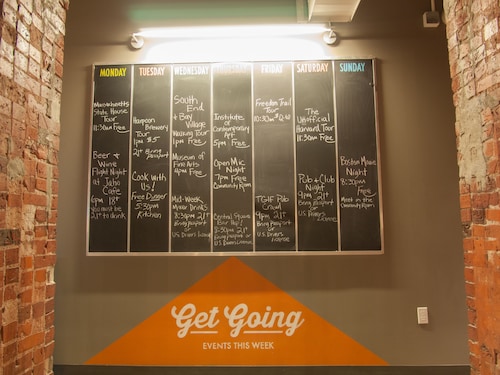 MONDAY
Massachusetts
State House
Tour
11:30am Free
Beer &
Wine
Flight Night
at Jaho
Cafe
6pm 18*
you must be
21+ to drink
TUESDAY
Harpoon
Brewery
Tour
1pm $5
21+ Bring Passport
Cook with
Us!
Free Dinner
5:30pm
Kitchen
WEDNESDAY
South
End
& Bay
Village
Walking Tour
1pm Free
Museum of
Fine Arts
4pm Free
Mid-Week
Drinks
21+
Bring Passport or
US Drivers License
Institute
of
Contemporary
Art
5pm Free
Open Mic
Night
7pm Free
Community Room
Central Square
Bar Hop!
21+
Bring Passport or
U.S. Drivers License
FRIDAY
Freedom Trail
Tour
10:30am
TGIF Pub
Crawl
9pm 21+
Bring Passport
or U.S. Drivers
License
SATURDAY
The
Unofficial
Harvard Tour
11:30am Free
Pub & Club
Night
9pm 21+
Bring Passport
or U.S. Drivers
License
SUNDAY
Boston Movie
Night
8:30pm
Free
Meet in the
Community Room
Get Going
EVENTS THIS WEEK